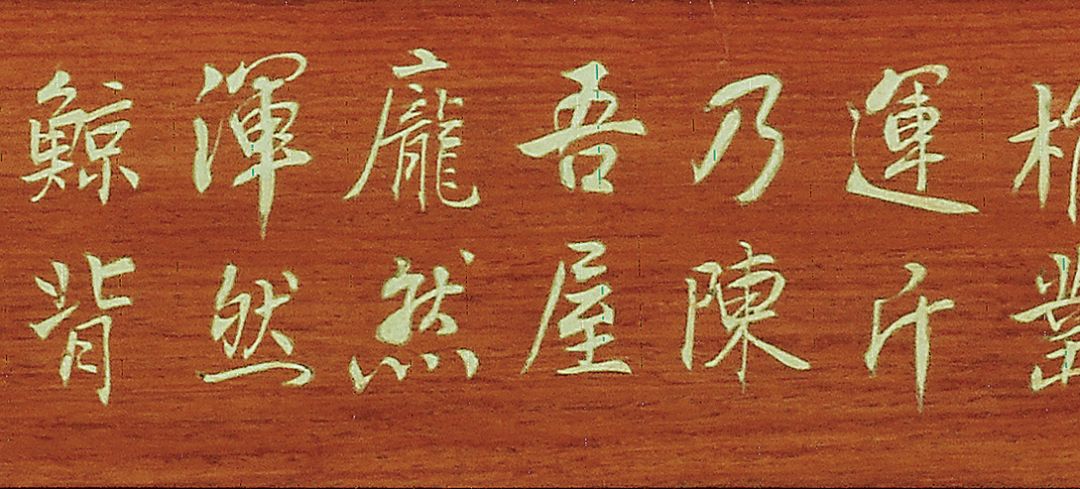 運斤
乃陳
吾屋
龐然
渾然
鯨背